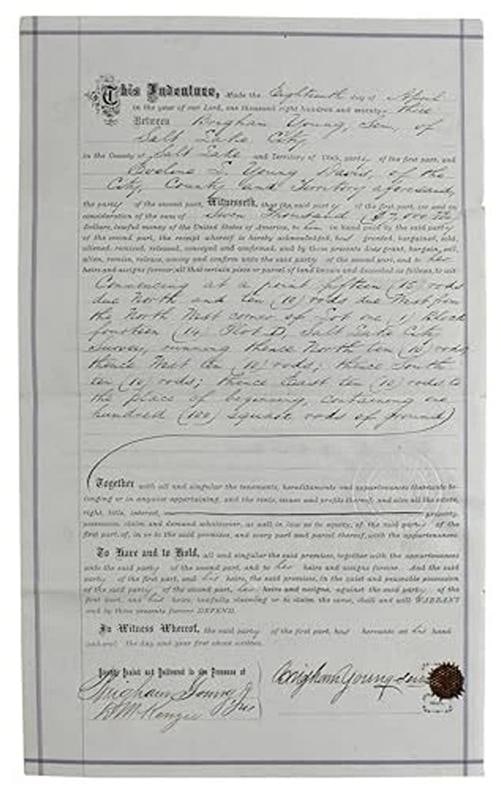 This Indenture, Made the Eighteenth day of April
in the year of our Lord, one thousand eight hundred and seventy-three
Between Brigham Young, Sen, of
Salt Lake City
in the County of Salt Lake and Territory of Utah, party of the first part, and
Eveline L. Young Davis, of the
City, County and Territory aforesaid,
the party of the second part, Witnesseth, that the said party of the first part, for and in
consideration of the sum of Seven Thousand ($7,000
Dollars, lawful money of the United States of America, to him in hand paid by the said party
of the second part, the receipt whereof is hereby acknowledged, has granted, bargained, sold,
aliened, remised, released, conveyed and confirmed, and by these presents does grant, bargain, sell,
alien, remise, release, convey and confirm unto the said party of the second part, and to her
heirs and assigns forever, all that certain piece or parcel of land known and described as follows, to wit:
Commencing at a point fifteen (15) rods
due North and ten (10) rods due West from
the North West corner of Lot one (1) Block
fourteen (14) Plot D, Salt Lake City
Survey, running thence North ten (10) rods;
thence West ten (10) rods; thence South
ten (10) rods; thence East ten (10) rods to
the place of beginning, containing one
hundred (100) square rods of ground)
Together with all and singular the tenements, hereditaments and appurtenances thereunto be-
longing or in anywise appertaining, and the rents, issues and profits thereof; and also all the estate,
right, title, interest, property,
possession, claim and demand whatsoever, as well in law as in equity, of the said party of the
first part, of, in or to the said premises, and every part and parcel thereof, with the appurtenances.
To Have and to Hold, all and singular the said premises, together with the appurtenances
unto the said party of the second part, and to her heirs and assigns forever. And the said
party of the first part, and his heirs, the said premises, in the quiet and peaceable possession
of the said party of the second part, her heirs and assigns, against the said party of the
first part, and his heirs, lawfully claiming or to claim the same, shall and will WARRANT
and by these presents forever DEFEND.
In Witness Whereof, the said party of the first part, has hereunto set his hand
and seal the day and year first above written.
Signed, Sealed and Delivered in the Presence of
Brigham Young Jr
Brigham Young Sen
D McKenzie